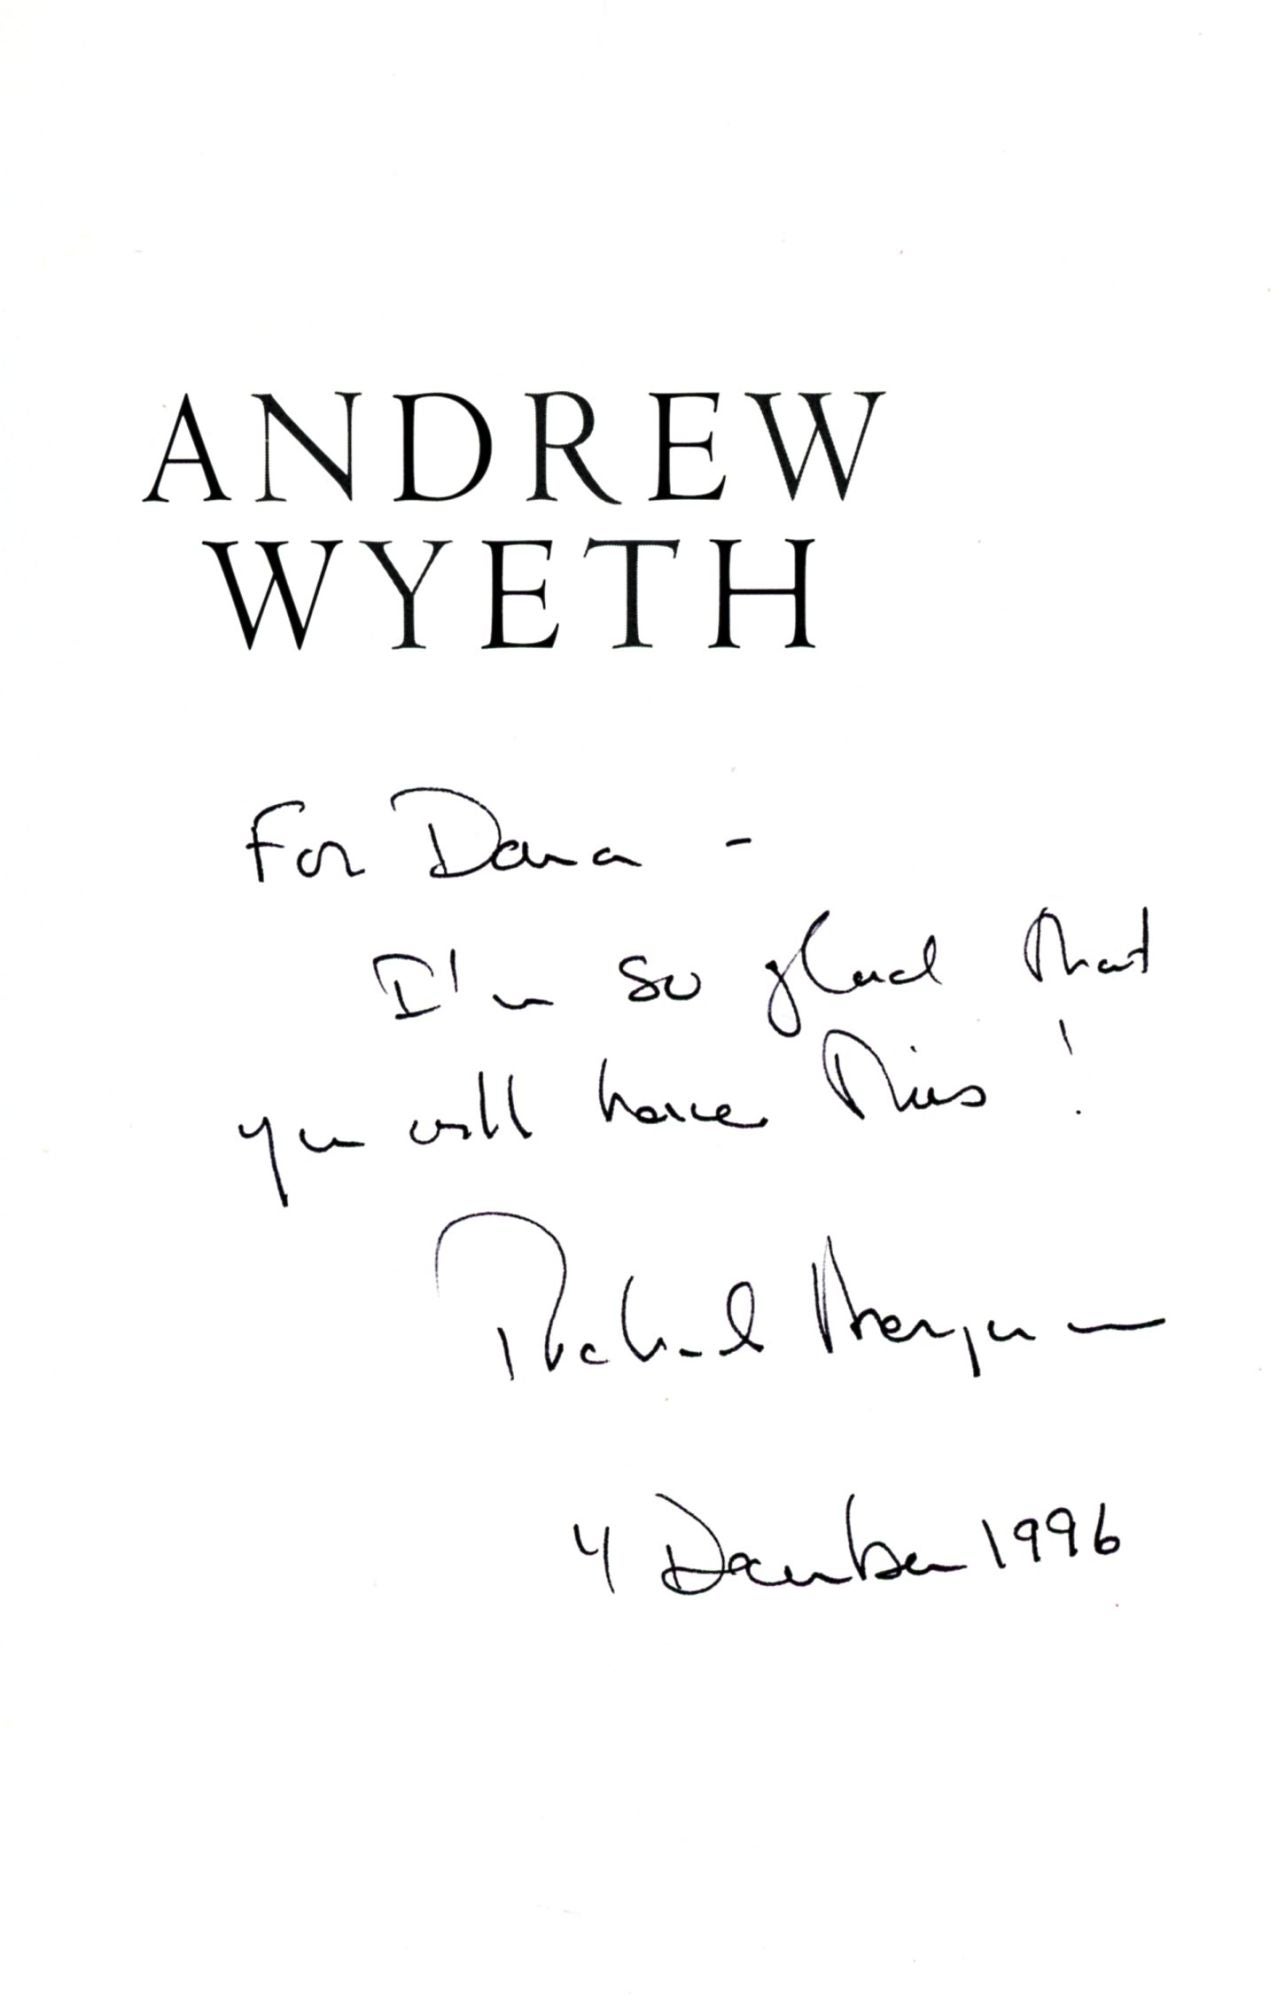 ANDREW
WYETH
For Dana -
I'm so glad that
you will have this!
Richard Meryman
4 December 1996